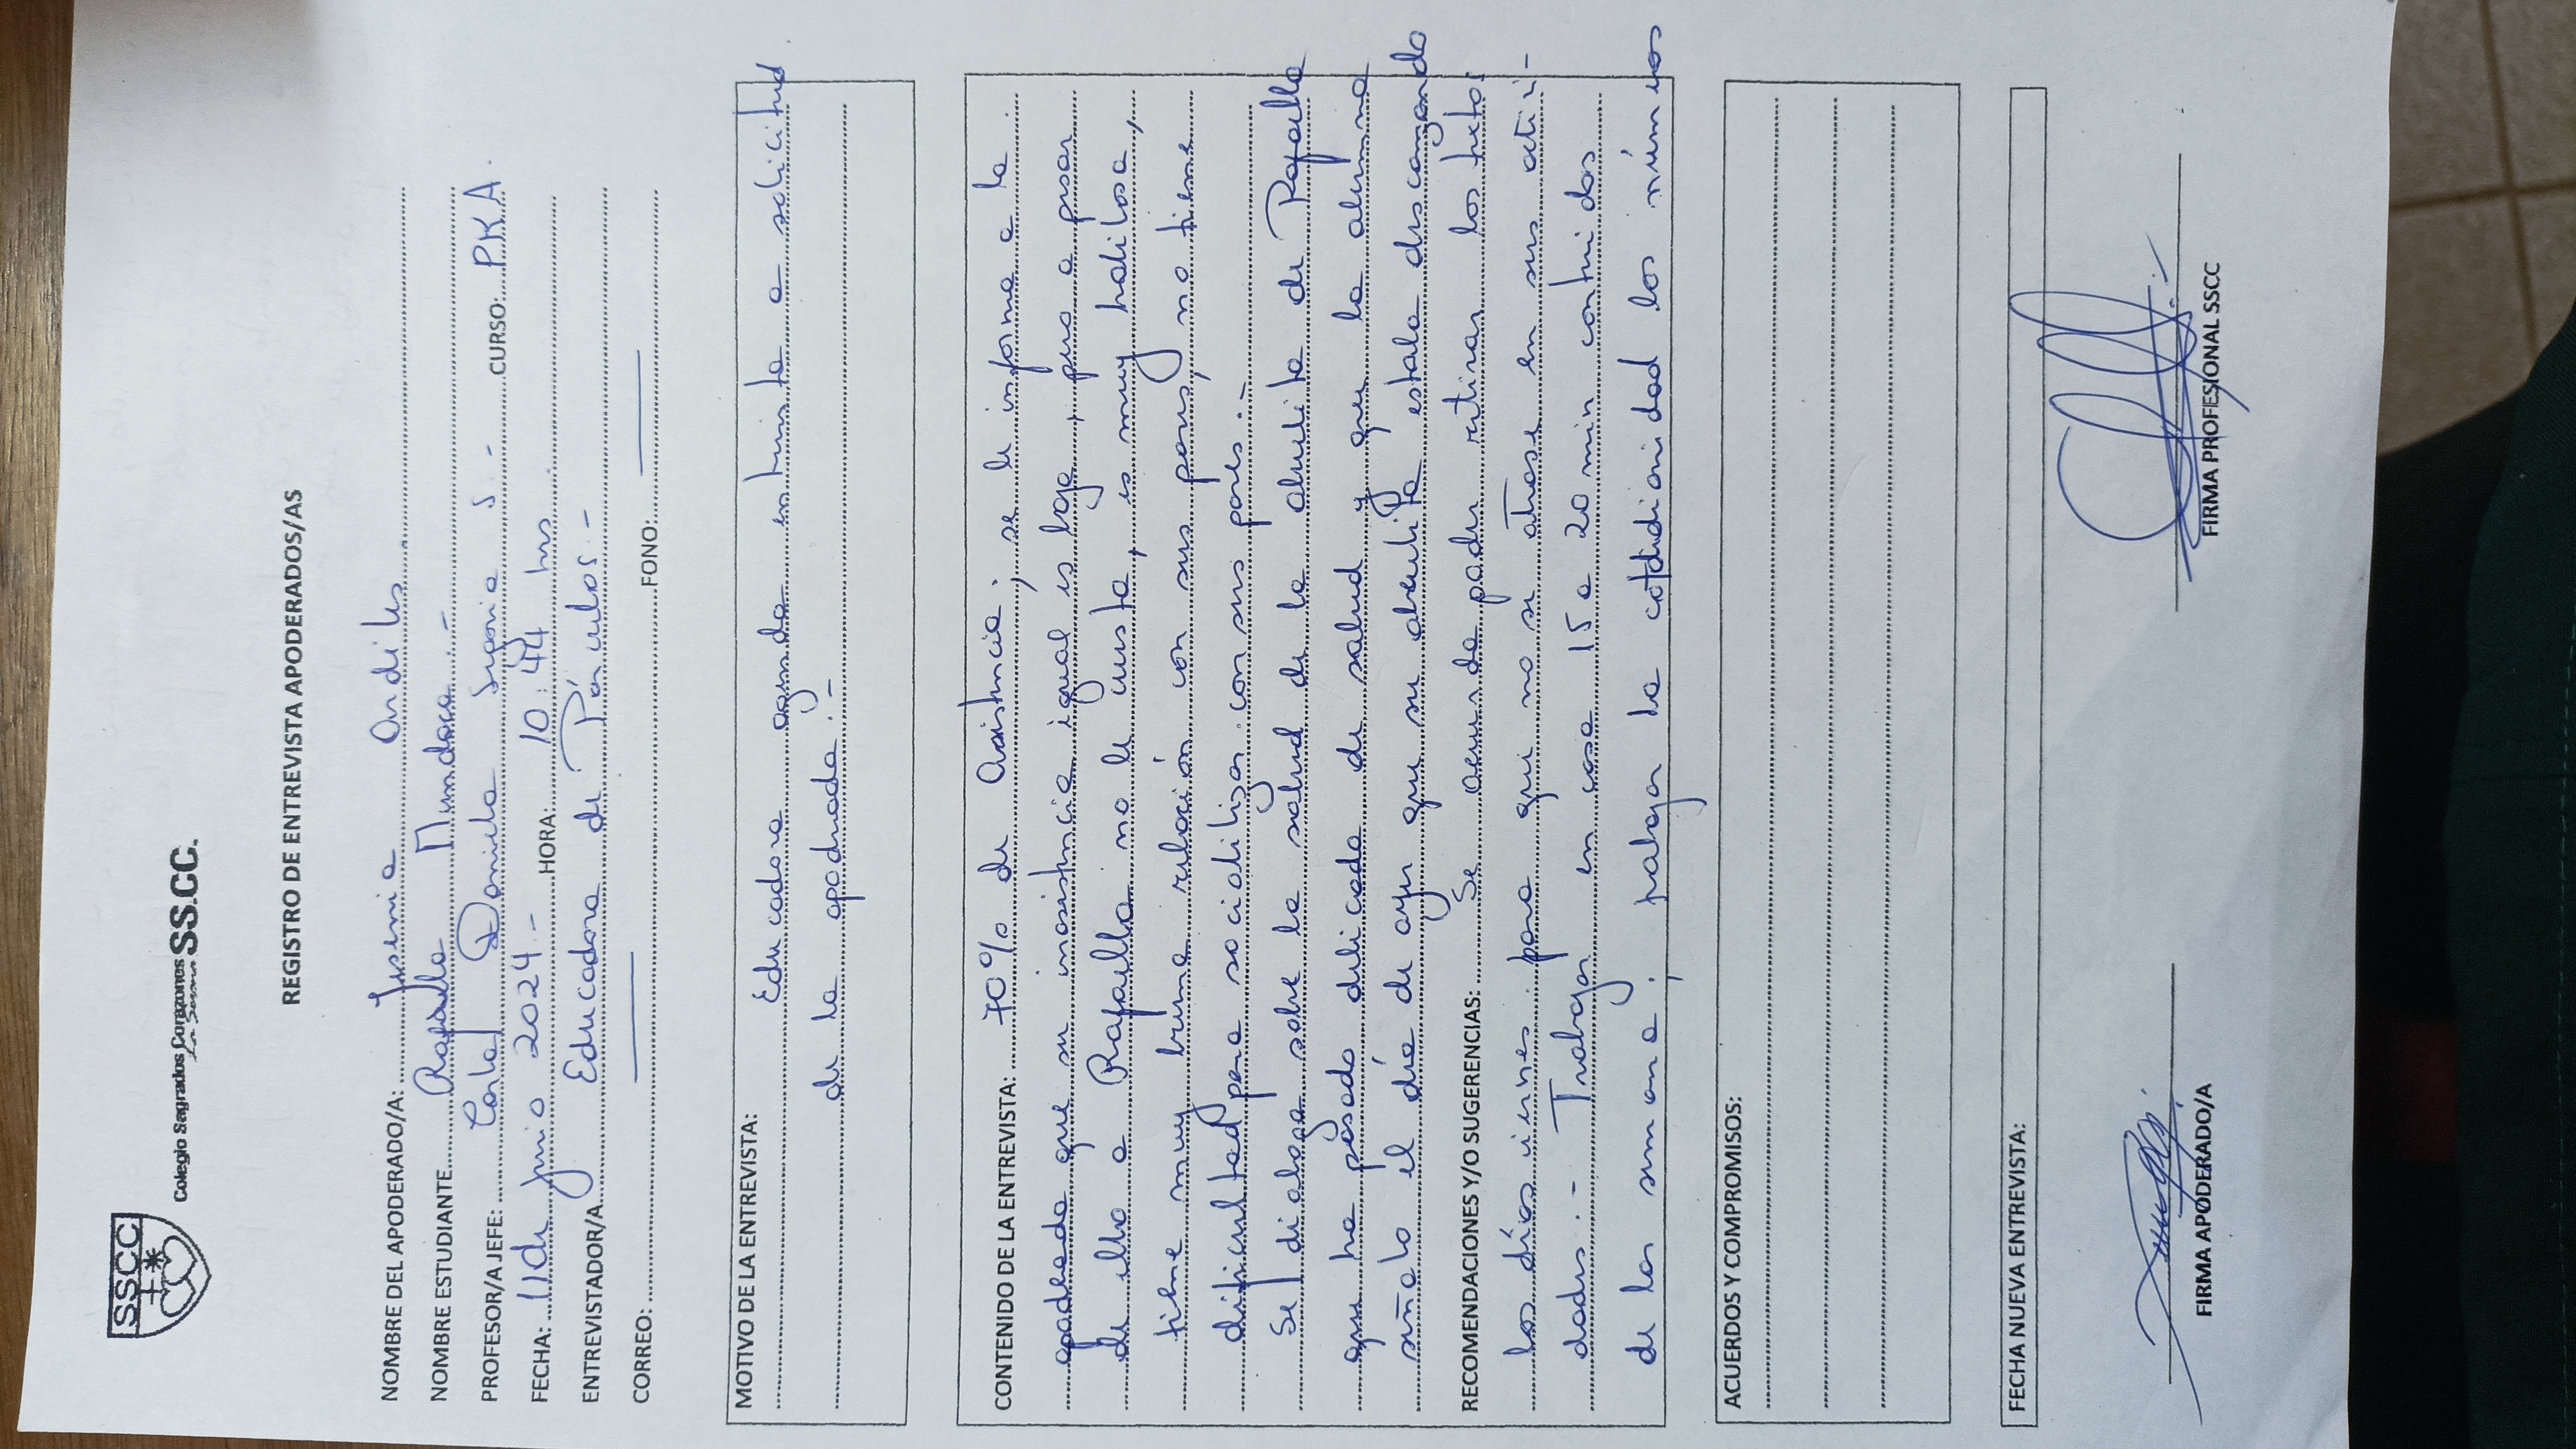 SSCC
Colegio Sagrados Corazones SS.CC.
La Serena
REGISTRO DE ENTREVISTA APODERADOS/AS
NOMBRE DEL APODERADO/A: Yesenia Ardiles
NOMBRE ESTUDIANTE Rafaella Mundaca.-
PROFESOR/A JEFE: Daniela S.- CURSO: PKA.
FECHA: 11 de junio 2024.- HORA: 10:44 hrs.
ENTREVISTADOR/A Educadora de Párvulos.-
CORREO: FONO:
MOTIVO DE LA ENTREVISTA: Educadora agenda entrevista a solicitud
de la apoderada.-
CONTENIDO DE LA ENTREVISTA: 70% de Asistencia; se le informa a la
apoderada que su inasistencia igual es baja, pero a pesar
de ello a Rafaella no le cuesta, es muy habilosa,
tiene muy buena relación con sus pares, no tiene
dificultad para socializar con sus pares.-
Se dialoga sobre la salud de la abuelita de Rafaella
que ha pasado delicada de salud y que la alumna
señalo el día de ayer que su abuelita estaba descansando
RECOMENDACIONES Y/O SUGERENCIAS: Se acuerda poder retirar los textos
los días viernes para que no se atrase en sus activi-
dades.- Trabajar en casa 15 a 20 min contenidos
de las semana; trabajar la cotidianidad los números
ACUERDOS Y COMPROMISOS:
FECHA NUEVA ENTREVISTA:
FIRMA APODERADO/A FIRMA PROFESIONAL SSCC